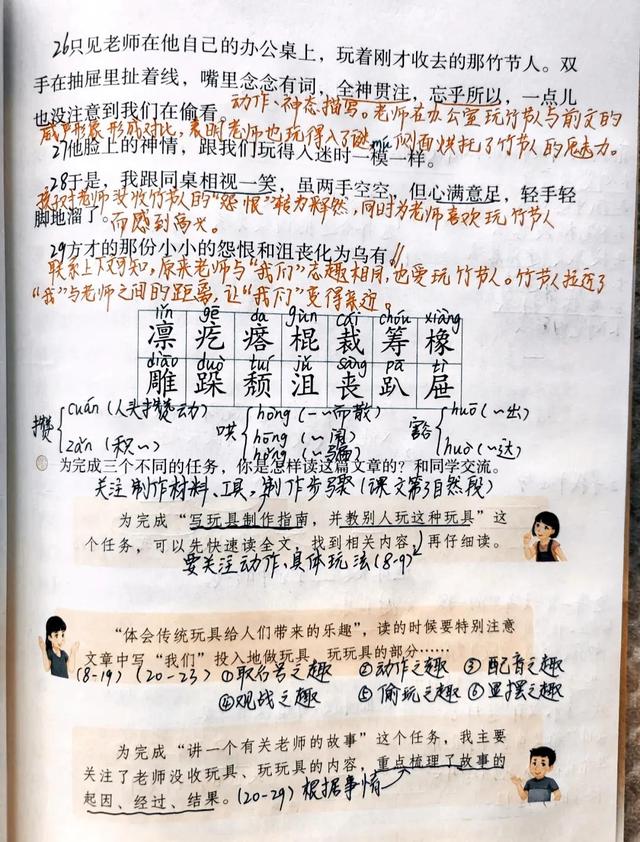 26只见老师在他自己的办公桌上，玩着刚才收去的那竹节人。双
手在抽屉里扯着线，嘴里念念有词，全神贯注，忘乎所以，一点儿
也没注意到我们在偷看。动作、神态描写。老师在办公室玩竹节人与前文的
威严形象形成对比，表明老师也玩得入了迷，侧面烘托了竹节人的魅力。
27他脸上的神情，跟我们玩得入迷时一模一样。
28于是，我跟同桌相视一笑，虽两手空空，但心满意足，轻手轻
对老师没收竹节人的“怨恨”转为释然，同时为老师喜欢玩竹节人
脚地溜了。而感到高兴。
29方才的那份小小的怨恨和沮丧化为乌有。
联系上下文可知，原来老师与“我们”志趣相同，也爱玩竹节人。竹节人拉近了
“我”与老师之间的距离，让“我们”变得亲近。
lǐn gē da gùn cái chóu xiàng
凛 疙 瘩 棍 裁 筹 橡
diāo duò tuí jǔ sàng pā ti
雕 跺 颓 沮 丧 趴 屉
攒 cuán（人头攒动） 哄 hòng（一~而散） 豁 huō（~出）
hōng（~闹）
zǎn（积~） hǒng（~骗） huò（~达）
为完成三个不同的任务，你是怎样读这篇文章的？和同学交流。
关注制作材料、工具，制作步骤（课文第3自然段）
为完成“写玩具制作指南，并教别人玩这种玩具”这
个任务，可以先快速读全文，找到相关内容，再仔细读。
要关注动作、具体玩法（8-9）
“体会传统玩具给人们带来的乐趣”，读的时候要特别注意
文章中写“我们”投入地做玩具、玩玩具的部分……
（8-19）（20-23）①取名号之趣 ②动作之趣 ③配音之趣
④观战之趣 ⑤偷玩之趣 ⑥显摆之趣
为完成“讲一个有关老师的故事”这个任务，我主要
关注了老师没收玩具、玩玩具的内容，重点梳理了故事的
起因、经过、结果。（20-29）根据事情